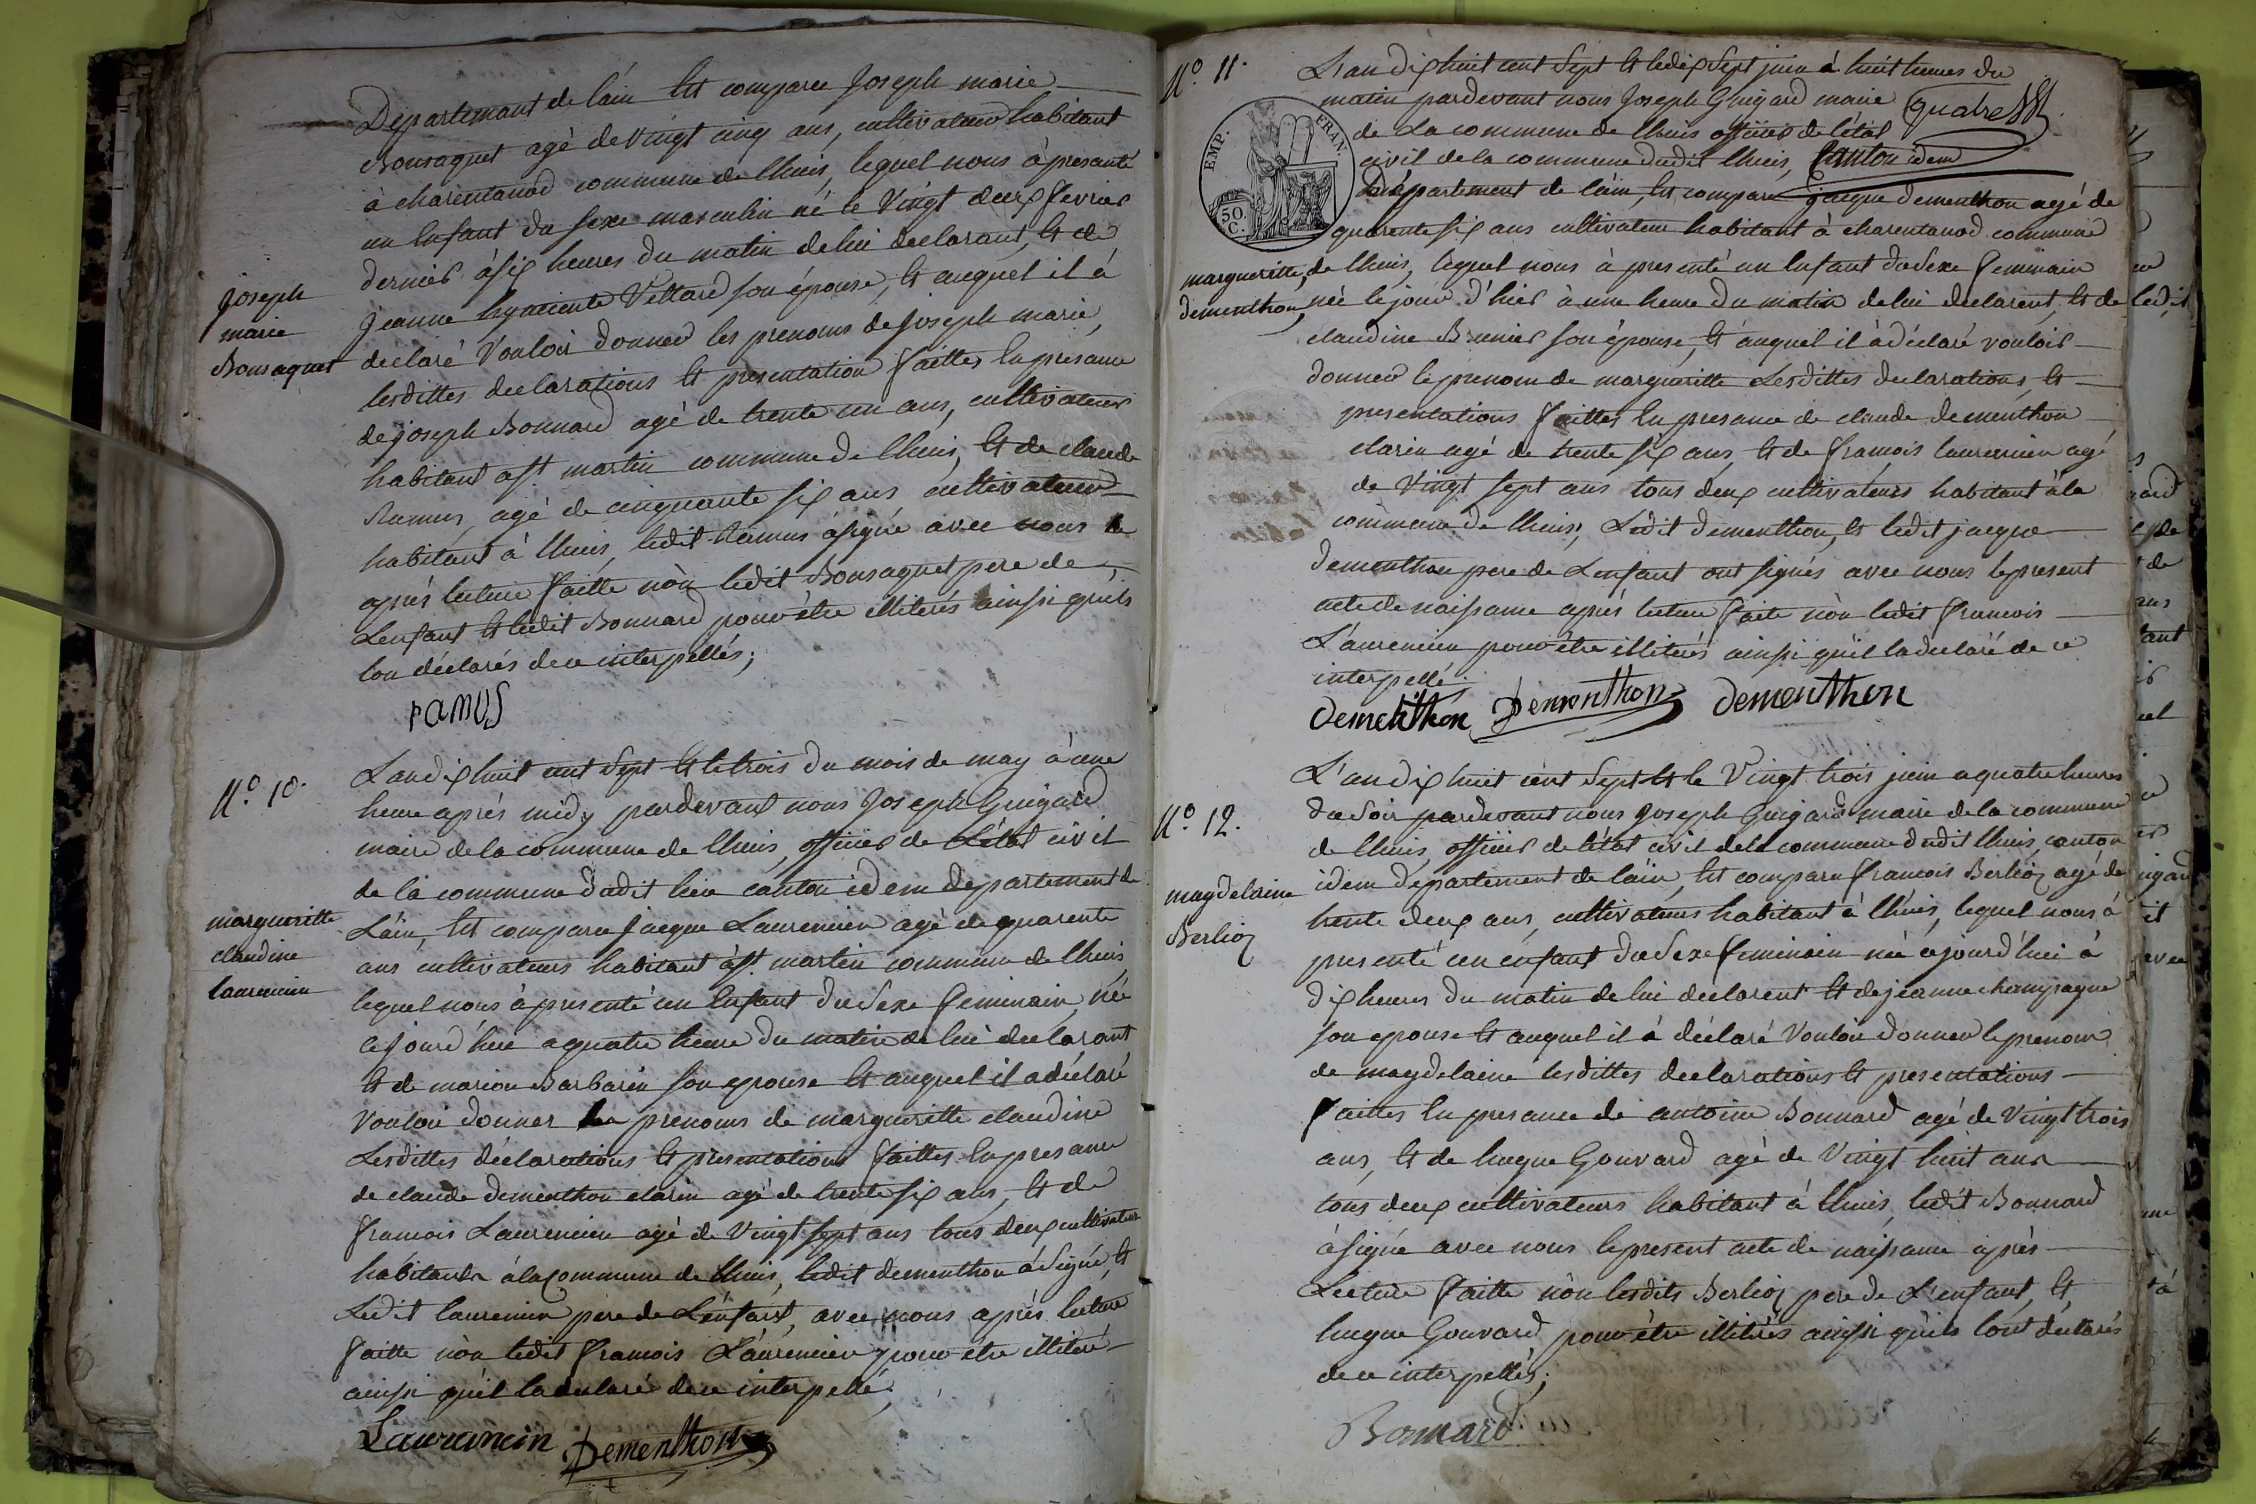 Departemant de l'áin Est comparu Joseph marie
Bonsaquet agè de vingt cinq ans, cultivateur habitant
à charentanod commune de lhuis, lequel nous à presanté
un Enfant du sexe masculin né le Vingt deux fevrier
dernier à six heures du matin de lui declarant, Et de
Jeanne hyaciente Vettard son épouse, Et auquel il à
declaré Vouloir donner les prenoms de Joseph marie,
lesdittes declarations Et presentation faittes En presance
de joseph Bonnard agé de trente un ans, cultivateur
habitant a st. martin commune de lhuis, Et de claude
Ramus, agé de cinquante six ans cultivateur
habitant à lhuis, ledit Ramus à signé avec nous
aprés lecture faitte nòn ledit Bonsaquet pere de
L'enfant Et ledit Bonnard pour être illiterés ainsi quils
lon déclarés de ce interpellés;
Joseph
marie
Bonsaquet
ramus
N.º 10.
L'an dix huit cent Sept Et le trois du mois de may à une
heure aprés midy pardevant nous Joseph Guigard
maire de la commune de lhuis, officier de L'état civil
de la commune dudit lieu canton idem departement de
L'áin, Est comparu jacque Laurencin agé de quarente
ans cultivateur habitant à st. martin commune de lhuis,
lequel nous à presenté un Enfant du Sexe feminain, née
cejourd'hui a quatre heure du matin de lui declarant
Et de marion Barbarin son epouse Et auquel il a déclaré
Vouloir donner les prenoms de margueritte claudine
Lesdittes déclarations Et presentations faittes En presance
de claude dementhon clarin agé de trente six ans, Et de
francois Laurencin agé de Vingt sept ans tous deux cultivateurs
habitants à la commune de lhuis, ledit dementhon à Signé, Et
Ledit laurencin pere de L'enfant, avec nous aprés lecture
faitte nòn ledit francois Laurencin pour etre illiteré
ainsi qu'il la declaré de ce interpellé.
margueritte
claudine
laurencin
Laurancin Dementhon
N.º 11.
L'an dix huit cent Sept Et le dix Sept juin à huit heures du
matin pardevant nous Joseph Guigard maire
de La commune de lhuis officier de l'état
civil de la commune dudit lhuis, Canton idem
Département de l'áin, Est comparu jacque dementhon agé de
quarente six ans cultivateur habitant à charentanod commune
de lhuis, lequel nous à presenté un Enfant du Sexe feminain
née le jour d'hier à une heure du matin de lui declarent, Et de
claudine Brunier son épouse, Et auquel il à déclaré vouloir
donner le prenom de margueritte Lesdittes declarations Et
presentations faittes En presance de claude dementhon
clarin agé de trente six ans, Et de francois laurencin agé
de Vingt sept ans tous deux cultivateurs habitant à la
commune de lhuis; Ledit dementhon, Et ledit jacque
dementhon pere de L'enfant ont signés avec nous le present
acte de naissance aprés lecture faite nòn ledit francois
L'aurencin pour être illiterés ainsi qu'il la declaré de ce
interpellé.
EMP. FRAN
50. C.
margueritte
dementhon
dementhon Dementhon dementhon
N.º 12.
L'an dix huit cent Sept Et le Vingt trois juin a quatre heures
du Soir pardevant nous Joseph Guigard, maire de la commune
de lhuis, officier de l'état civil de la commune dudit lhuis, canton
idem departement de l'áin, Est comparu francois Berlioz agé de
trente deux ans, cultivateur habitant à lhuis, lequel nous à
presenté un enfant du Sexe feminin née cejourd'hui à
dix heures du matin de lui declarent Et de jeanne champagne
son epouse Et auquel il à déclaré Vouloir donner le prenom
de magdelaine lesdittes declarations Et presentations
faittes En presance de antoine Bonnard agé de Vingt trois
ans, Et de hugue Gouvard agé de Vingt huit ans
tous deux cultivateurs habitant à lhuis, ledit Bonnard
à signé avec nous le present acte de naissance aprés
Lecture faitte nòn lesdits Berlioz pere de L'enfant, Et
hugue Gouvard pour être illitérés ainsi qu'ils l'ont déclarés
de ce interpellés;
magdelaine
Berlioz
Bonnard